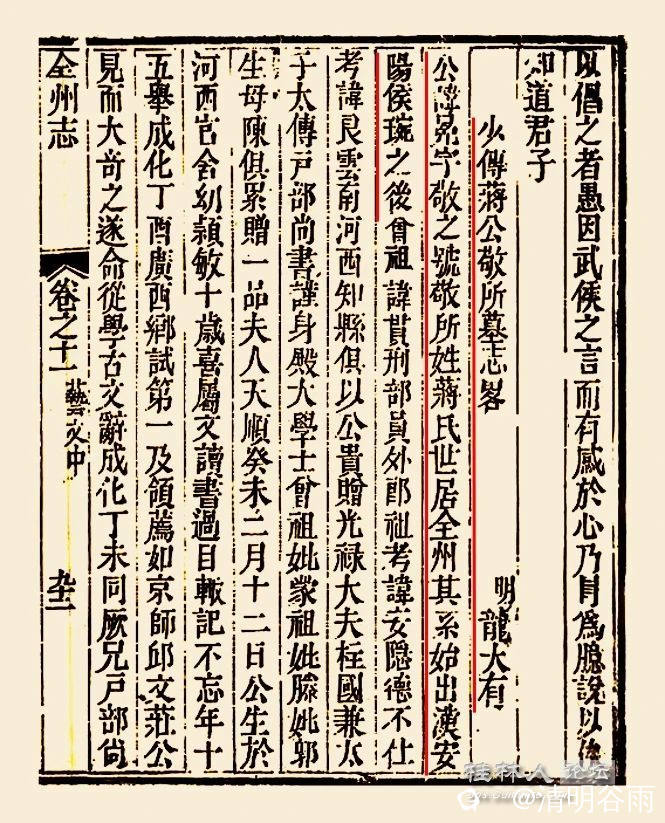 以倡之者愚因武侯之言而有感於心乃自為臆說以俟
知道君子
少傅蔣公敬所墓志畧
明龍大有
公諱冕字敬之號敬所姓蔣氏世居全州其系始出漢安
陽侯琬之後曾祖諱貫刑部員外郎祖考諱安隱德不仕
考諱良雲南河西知縣俱以公貴贈光祿大夫柱國兼太
子太傅戶部尚書謹身殿大學士曾祖妣蒙祖妣滕妣郭
生母陳俱累贈一品夫人天順癸未二月十二日公生於
河西官舍幼穎敏十歲喜屬文讀書過目輙記不忘年十
五舉成化丁酉廣西鄉試第一及領薦如京師邱文莊公
見而大奇之遂命從學古文辭成化丁未同厥兄戶部尚
全州志
卷之十一
藝文中
桂林人论坛
@清明谷雨